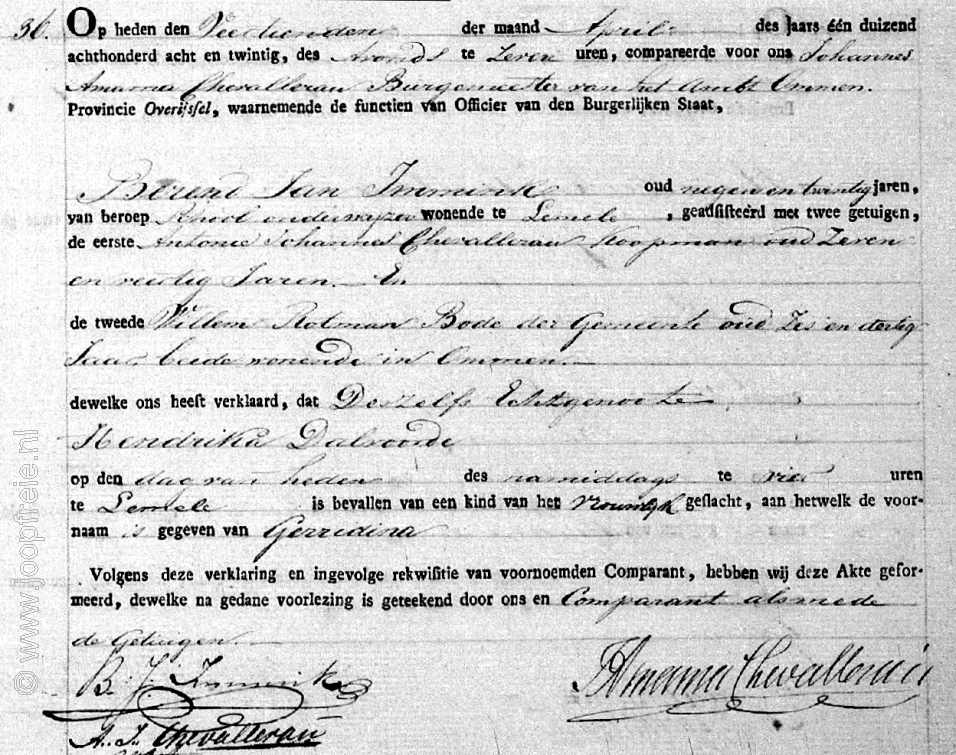 36. Op heden den Veertienden der maand April des jaars één duizend
achthonderd acht en twintig, des Avonds te Zeven uren, compareerde voor ons Johannes
Amama Chevallerau Burgemeester van het Ambt Ommen.
Provincie Overijssel, waarnemende de functien van Officier van den Burgerlijken Staat,
Berend Jan Immink oud negen en twintig jaren,
van beroep School onderwyzer wonende te Lemele, geadsisteerd met twee getuigen,
de eerste Antonie Johannes Chevallerau Koopman oud Zeven
en veertig Jaren. En
de tweede Willem Rotman Bode der Gemeente oud Zes en dertig
Jaar beide wonende in Ommen.
dewelke ons heeft verklaard, dat Deszelfs Echtgenoote
Hendrika Dalvoorde
op den dag van heden des namiddags te vier uren
te Lemele is bevallen van een kind van het vrouwlyk geslacht, aan hetwelk de voor-
naam is gegeven van Gerredina
Volgens deze verklaring en ingevolge rekwisitie van voornoemden Comparant, hebben wij deze Akte gefor-
meerd, dewelke na gedane voorlezing is geteekend door ons en Comparant alsmede
de Getuigen.
B. J. Immink
JAmama Chevallerau
A. J. Chevallerau
© www.joopfreie.nl